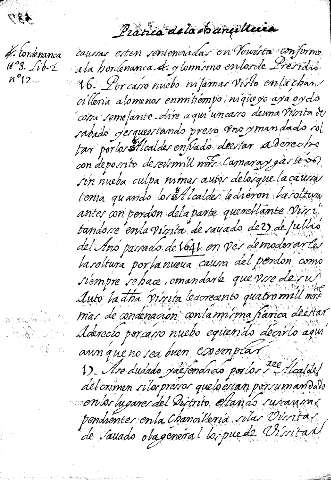 Pratica de la chancilleria
causas esten sentenciadas en Revista conforme
a la hordenança y lo mismo en los de Presidio
16. Por caso nuebo ni Jamas Visto en la chan
cilleria a lo menos en mi tiempo, ni que yo aya oydo
cosa semejante. dire aqui un caso de una Visita de
sabado, y es que estando preso Uno y mandado sol
tar por los Alcaldes en fiado, de estar a derecho
con deposito de seis mill mrs
sin nueba culpa ni mas autos de los que la causa
tenia quando los Alcaldes le dieron la soltura
antes con perdon de la parte querellante Vissi
tandose en la Vissita de savado de 27 de Jullio
del Año pasado de 1641 en ves de moderarles
la soltura por la nueva causa del perdon como
siempre se hace, o mandarle que use de su
Auto la dha Visita le acrecento quatro mill mrs
mas de condenacion con la misma fiança de estar
A derecho por caso nuebo e querido decirlo aqui
aunque no sea buen exemplar
17. A se dudado y a se fondico por los Alcaldes
del crimen si los presos que lo estan por su mandado
en los lugares del Distrito, estando sus causas
pendientes en la Chancilleria, si las Vissitas
de Savado o la general los puede Vissitar
hordenança
n.º 8. Lib. 2
nº 12